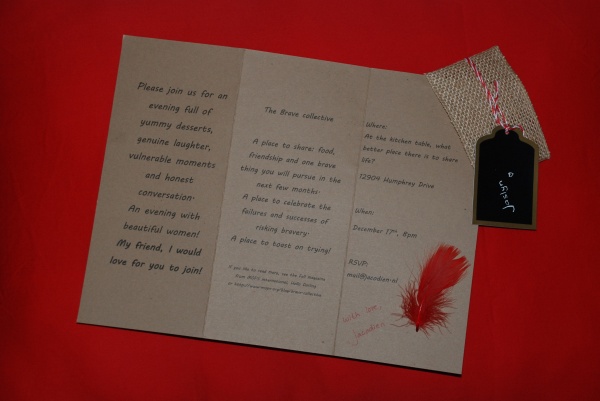 Please join us for an
evening full of
yummy desserts,
genuine laughter,
vulnerable moments
and honest
conversation.
An evening with
beautiful women!
My friend, I would
love for you to join!
The Brave collective
A place to share: food,
friendship and one brave
thing you will pursue in the
next few months.
A place to celebrate the
failures and successes of
risking bravery.
A place to toast on trying!
Where:
At the kitchen table, what
better place there is to share
life?
12904 Humphrey Drive
When:
December 17th, 8pm
RSVP:
With love,